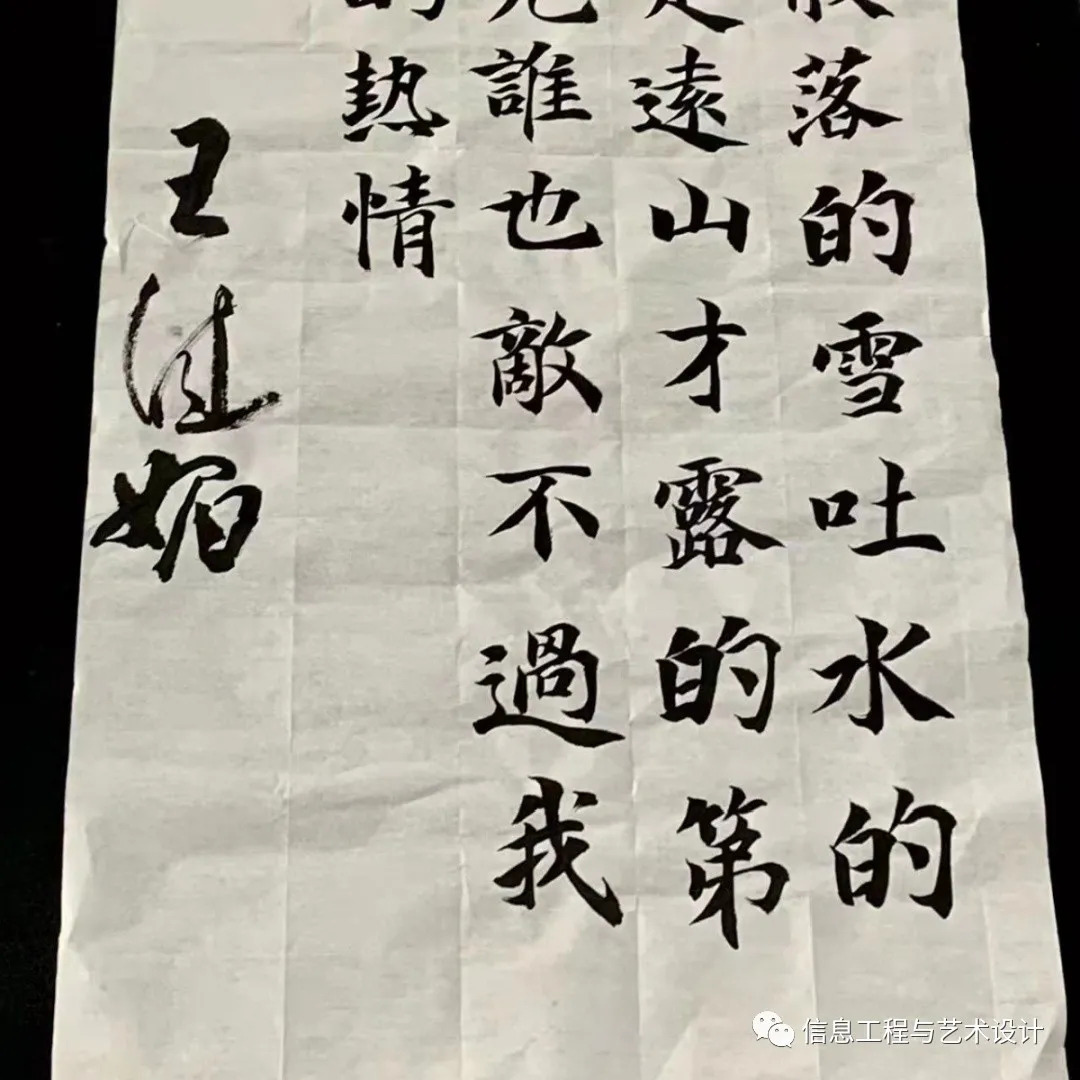 落的雪吐水的
遠山才露的第
誰也敵不過我
的熱情
王佳媚
信息工程与艺术设计